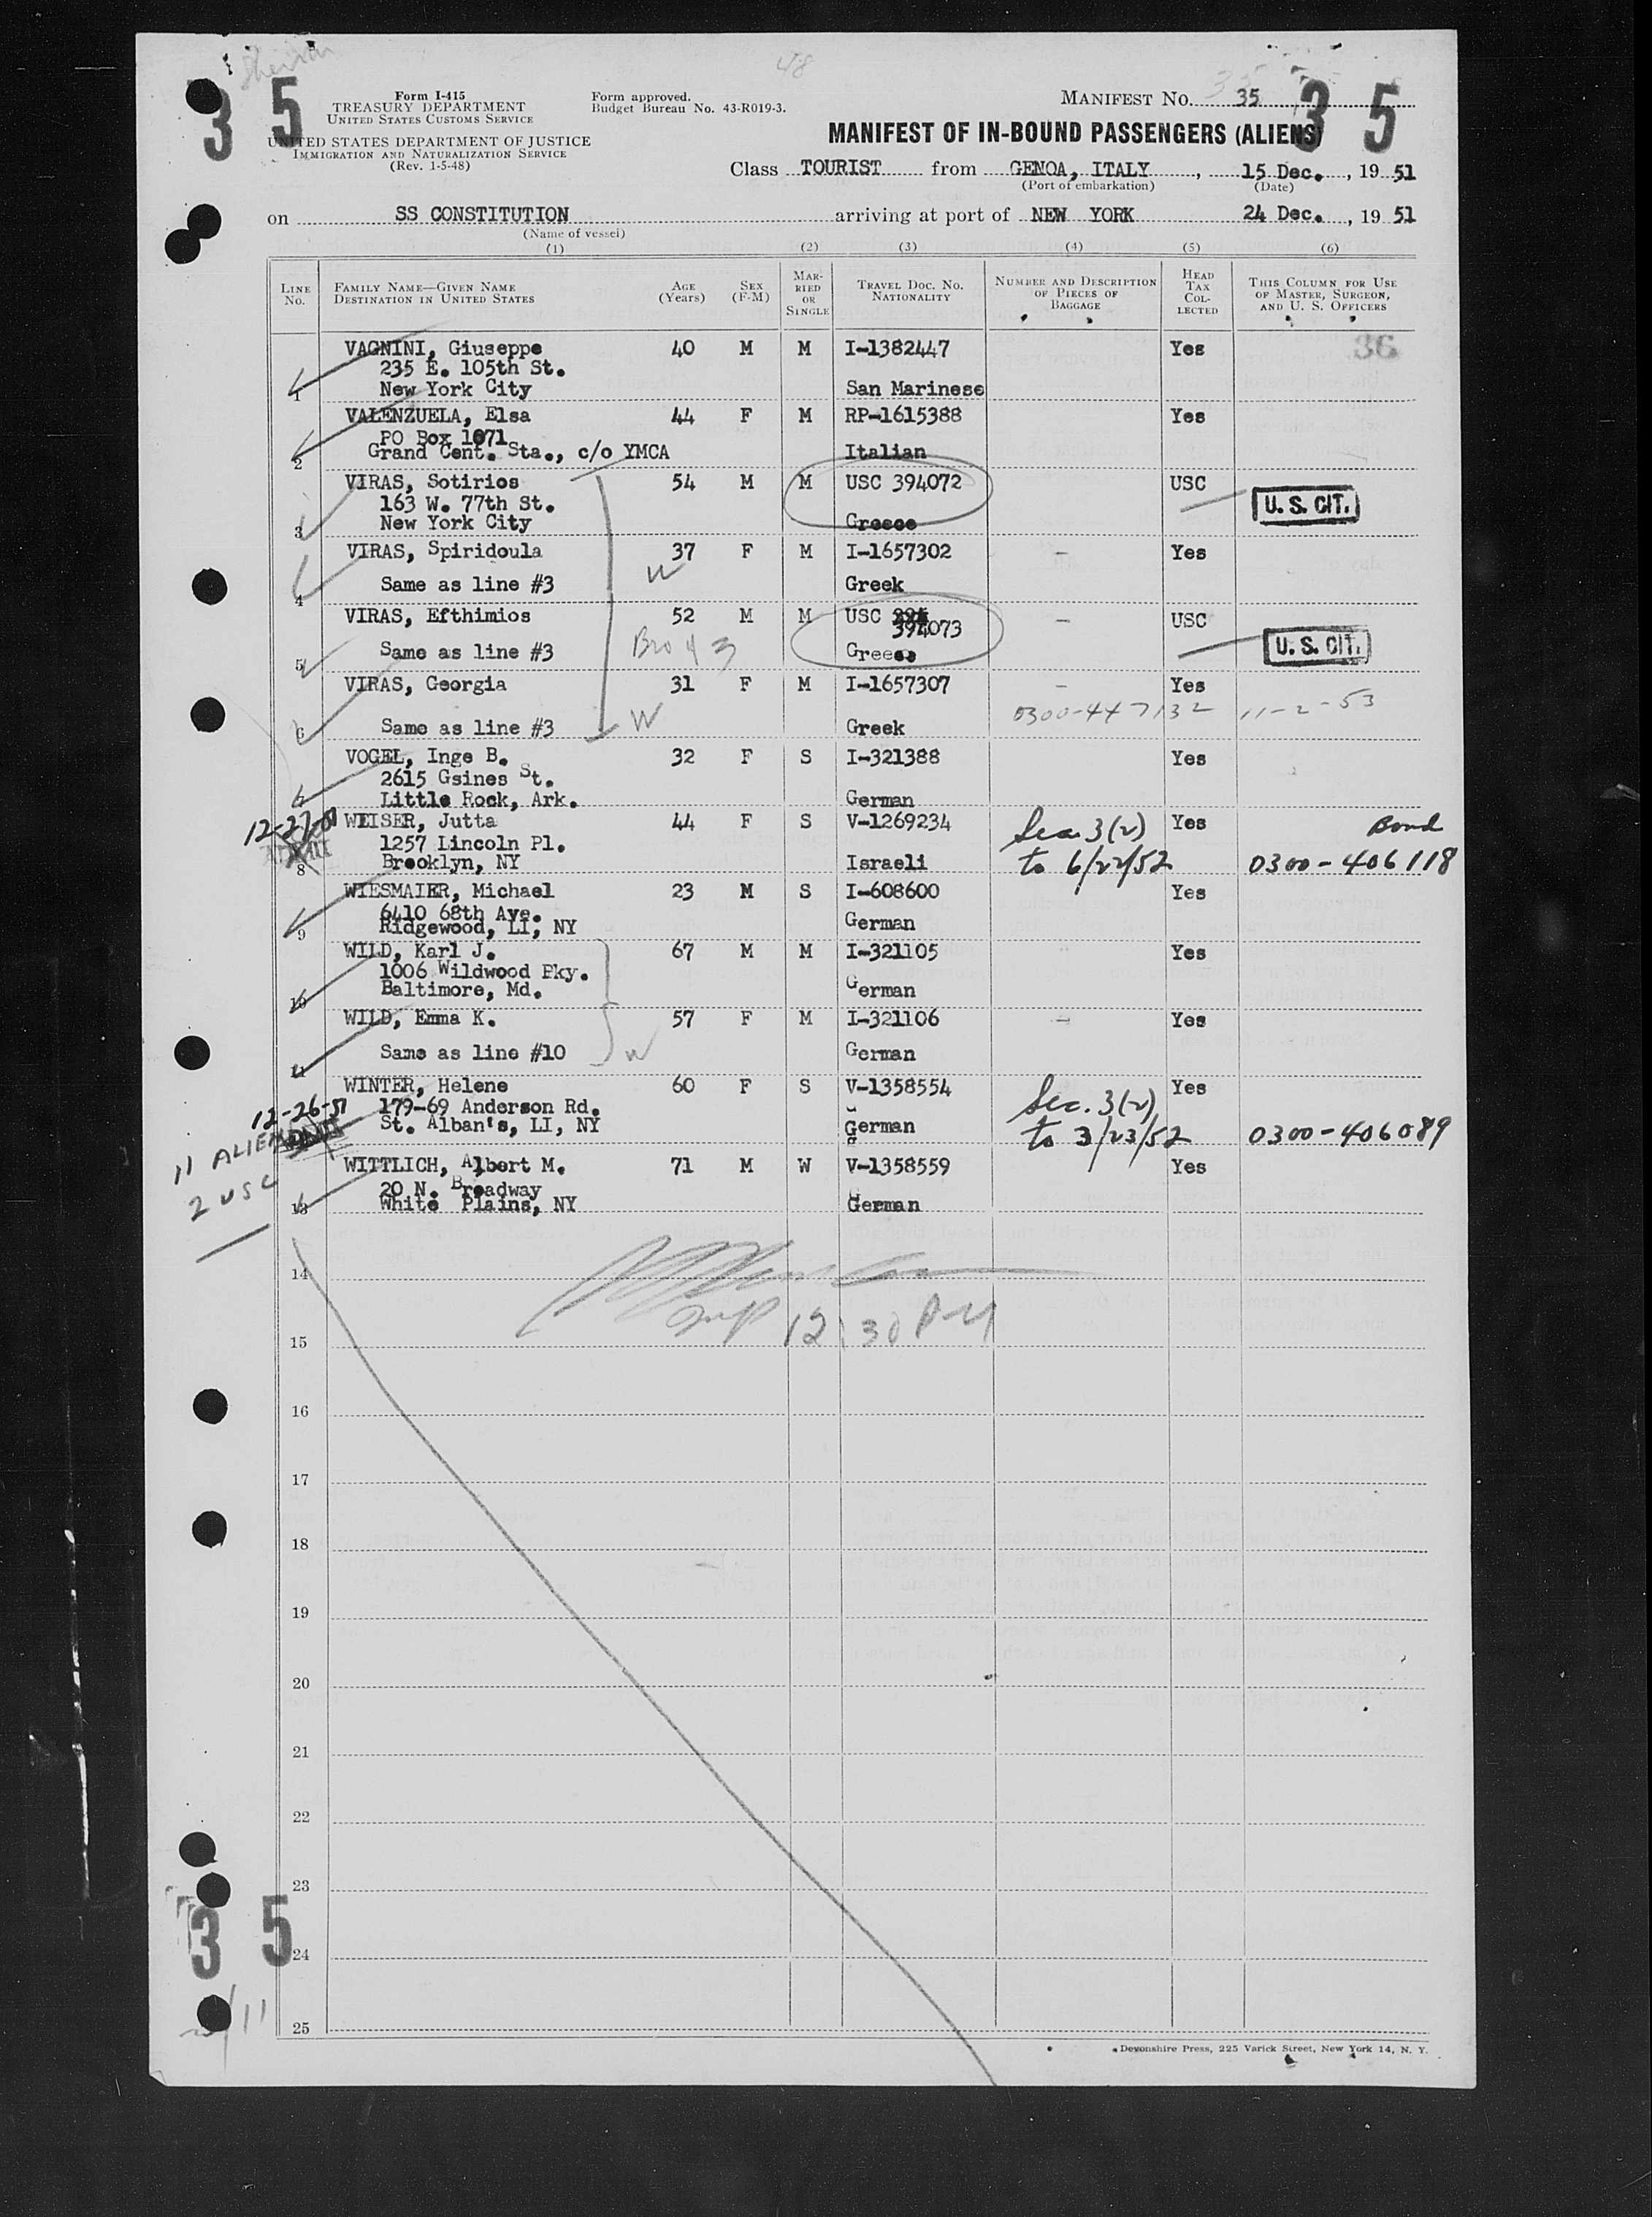 48
3 5
Form I-415
TREASURY DEPARTMENT
UNITED STATES CUSTOMS SERVICE
UNITED STATES DEPARTMENT OF JUSTICE
IMMIGRATION AND NATURALIZATION SERVICE
(Rev. 1-5-48)
Form approved.
Budget Bureau No. 43-R019-3.
MANIFEST No. 35
3 5
MANIFEST OF IN-BOUND PASSENGERS (ALIENS)
Class TOURIST from GENOA, ITALY, 15 Dec., 19 51
(Port of embarkation) (Date)
on SS CONSTITUTION arriving at port of NEW YORK 24 Dec., 19 51
(Name of vessel)
(1) (2) (3) (4) (5) (6)
LINE No. FAMILY NAME—GIVEN NAME DESTINATION IN UNITED STATES AGE (Years) SEX (F-M) MARRIED OR SINGLE TRAVEL DOC. NO. NATIONALITY NUMBER AND DESCRIPTION OF PIECES OF BAGGAGE HEAD TAX COLLECTED THIS COLUMN FOR USE OF MASTER, SURGEON, AND U. S. OFFICERS
VAGNINI, Giuseppe 40 M M I-1382447 Yes 36
235 E. 105th St.
1 New York City San Marinese
VALENZUELA, Elsa 44 F M RP-1615388 Yes
PO Box 1071
2 Grand Cent. Sta., c/o YMCA Italian
VIRAS, Sotirios 54 M M USC 394072 USC U. S. CIT.
163 W. 77th St.
3 New York City Greece
VIRAS, Spiridoula 37 F M I-1657302 - Yes
W
4 Same as line #3 Greek
VIRAS, Efthimios 52 M M USC 394073 - USC
5 Same as line #3 Bro of 3 Greece U. S. CIT.
VIRAS, Georgia 31 F M I-1657307 - Yes
0300-447132 11-2-53
6 Same as line #3 W Greek
VOGEL, Inge B. 32 F S I-321388 Yes
2615 Gsines St.
7 Little Rock, Ark. German
12-27-51 WEISER, Jutta 44 F S V-1269234 Sec. 3(2) Yes Bond
ADMIT 1257 Lincoln Pl.
8 Brooklyn, NY Israeli to 6/22/52 0300-406118
WIESMAIER, Michael 23 M S I-608600 Yes
6410 68th Ave.
9 Ridgewood, LI, NY German
WILD, Karl J. 67 M M I-321105 Yes
1006 Wildwood Pky.
10 Baltimore, Md. German
WILD, Emma K. 57 F M I-321106 - Yes
11 Same as line #10 W German
WINTER, Helene 60 F S V-1358554 Sec. 3(2) Yes
12-26-51 179-69 Anderson Rd.
St. Alban's, LI, NY German to 3/23/52 0300-406089
11 ALIEN
WITTLICH, Albert M. 71 M W V-1358559 Yes
2 USC 20 N. Broadway
13 White Plains, NY German
14
15 12 30 PM
16
17
18
19
20
21
22
23
3 5
24
25
11
Devonshire Press, 225 Varick Street, New York 14, N. Y.